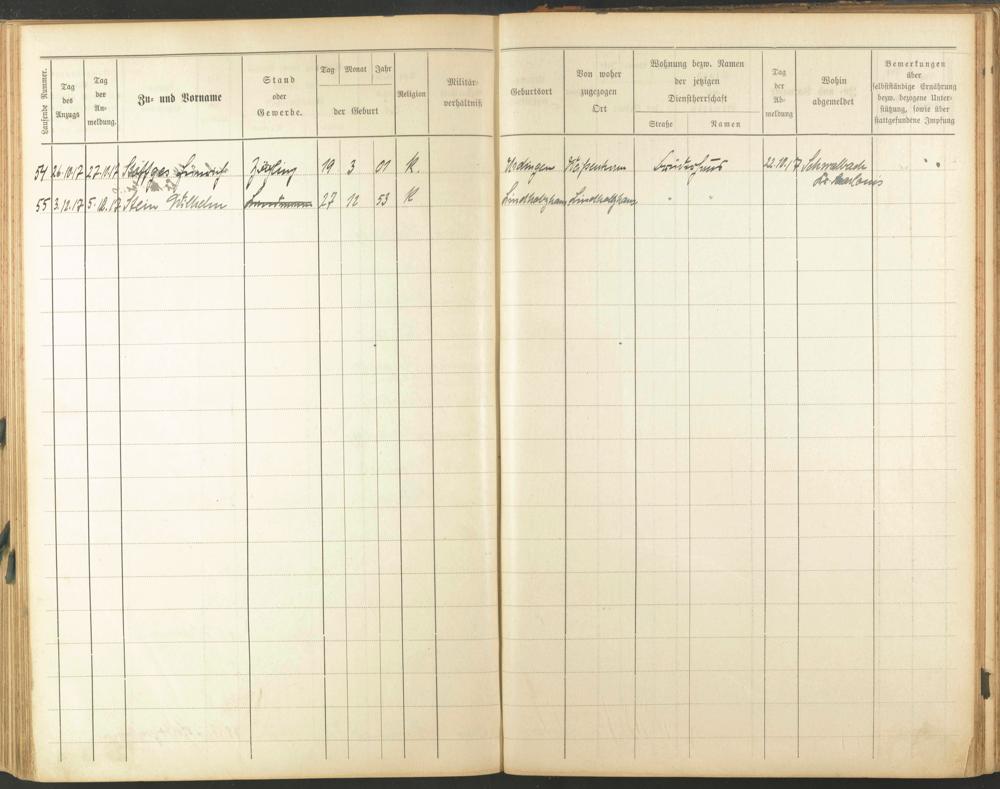 Laufende Nummer.
Tag des Anzugs
Tag der An- meldung.
Zu- und Vorname
Stand oder Gewerbe.
Tag Monat Jahr
der Geburt
Religion
Militär- verhältniß
Geburtsort
Von woher zugezogen Ort
Wohnung bezw. Namen der jetzigen Dienstherrschaft
Straße Namen
Tag der Ab- meldung
Wohin abgemeldet
Bemerkungen über selbstständige Ernährung bezw. bezogene Unter- stützung, sowie über stattgefundene Impfung
54 26.10.17 27.10.17 Heinrich Zögling 19 3 01 K. Bruderhaus 22.10.17 Schwalbach
Kr. Saarlouis
55 3.12.17 Stein Wilhelm 27 12 53 K Lindholzhausen Lindholzhausen " "